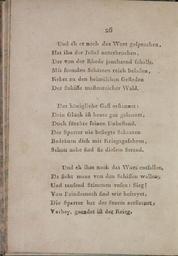 26
Und eh er noch das Wort gesprochen,
Hat ihn der Jubel unterbrochen,
Der von der Rhede jauchzend schallt.
Mit fremden Schätzen reich beladen,
Kehrt zu den heimischen Gestaden
Der Schiffe mastenreicher Wald.
Der königliche Gast erstaunet:
Dein Glück ist heute gut gelaunet,
Doch fürchte seinen Unbestand.
Der Sparter nie besiegte Schaaren
Bedräuen dich mit Kriegsgefahren,
Schon nahe sind sie diesem Strand.
Und eh ihm noch das Wort entfallen,
Da sieht man von den Schiffen wallen,
Und tausend Stimmen rufen: Sieg!
Von Feindesnoth sind wir befreyet,
Die Sparter hat der Sturm zerstreuet,
Vorbey, geendet ist der Krieg.